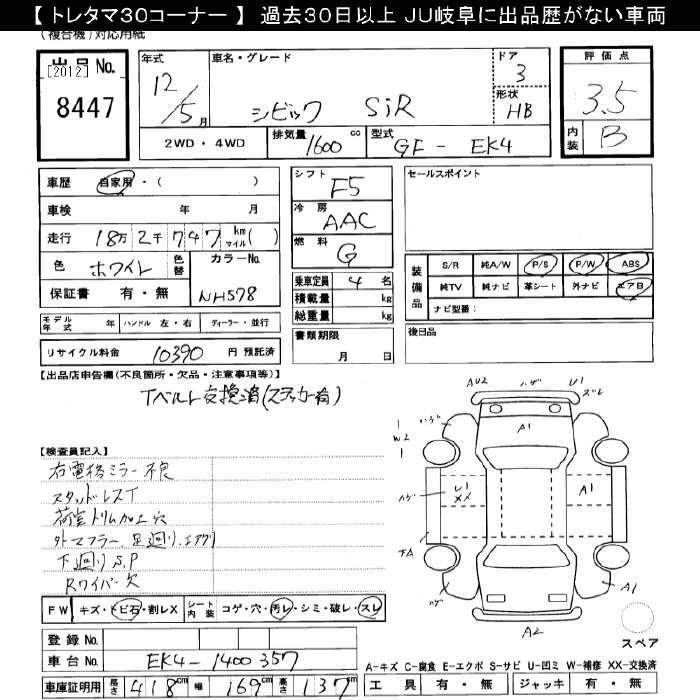 【 トレタマ30コーナー 】 過去30日以上 JU岐阜に出品歴がない車両
(複合機)対応用紙
出品No.
[2012]
8447
年式
12/5月
車名・グレード
シビック SiR
ドア
3
形状
HB
評価点
3.5
内装
B
2WD・4WD
排気量 1600 cc
型式 GF - EK4
車歴 自家用・( )
車検 年 月
走行 18万 2千 7 4 7 km マイル ( )
色 ホワイト 色替
カラーNo.
NH578
保証書 有・無
シフト F5
冷房 AAC
燃料 G
乗車定員 4 名
積載量 kg
総重量 kg
書類期限
月 日
セールスポイント
装備品
S/R 純A/W P/S P/W ABS
純TV 純ナビ 革シート 外ナビ エアB
ナビ型番:
後日品
モデル年式 年 ハンドル 左・右 ディーラー・並行
リサイクル料金 10390 円 預託済
【出品店申告欄(不良箇所・欠品・注意事項等)】
Tベルト交換済(ステッカー有)
【検査員記入】
右電格ミラー不良
スタッドレスT
荷室トリム加工穴
外マフラー、足廻り、エアクリ
下廻りS,P
Rワイパー欠
AU2 ハゲ U1 ズレ
A1
1
W2
1
ハゲ
U1
XX
A1
ハゲ
ハゲ
A1
A2
スペア
FW キズ・トビ石・割レX
シート内装 コゲ・穴・汚レ・シミ・破レ・スレ
登録No.
車台No. EK4-1400357
車庫証明用 長さ 418cm 幅 169cm 高さ 137cm
A-キズ C-腐食 E-エクボ S-サビ U-凹ミ W-補修 XX-交換済
工具 有・無 ジャッキ 有・無